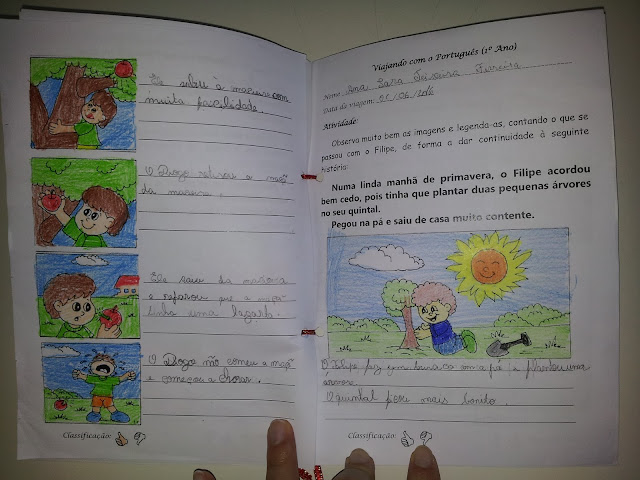 Ele subiu à macieira com
muita facilidade.
O Diogo retirou a maçã
da macieira.
Ele saiu da macieira
e reparou que a maçã
tinha uma lagarta.
O Diogo não comeu a maçã
e começou a chorar.
Classificação:
Viajando com o Português (1º Ano)
Nome: Ana Sara Teixeira Ferreira
Data da viagem: /06/2016
Atividade:
Observa muito bem as imagens e legenda-as, contando o que se
passou com o Filipe, de forma a dar continuidade à seguinte
história:
Numa linda manhã de primavera, o Filipe acordou
bem cedo, pois tinha que plantar duas pequenas árvores
no seu quintal.
Pegou na pá e saiu de casa muito contente.
O Filipe fez um buraco com a pá e plantou uma
árvore.
O quintal ficou mais bonito.
Classificação: